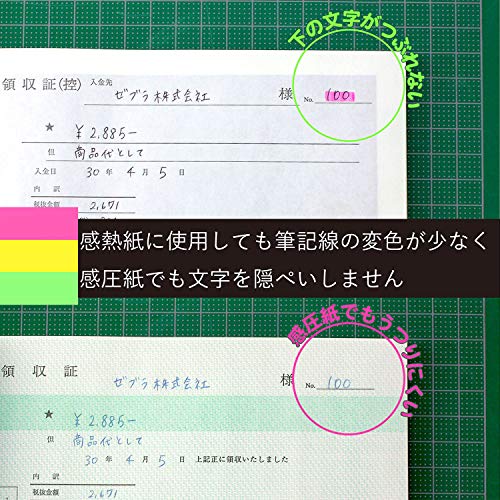 下の文字がつぶれない
領収証(控)
入金先
ゼブラ株式会社
様
No. 100
★
¥2,885-
但
商品代として
入金日 30年4月5日
内訳
税抜金額 2,671
感熱紙に使用しても筆記線の変色が少なく
感圧紙でも文字を隠ぺいしません
感圧紙でもうつりにくい
領収証
ゼブラ株式会社
様
No. 100
★
¥2,885-
但
商品代として
30年4月5日 上記正に領収いたしました
内訳
税抜金額 2,671